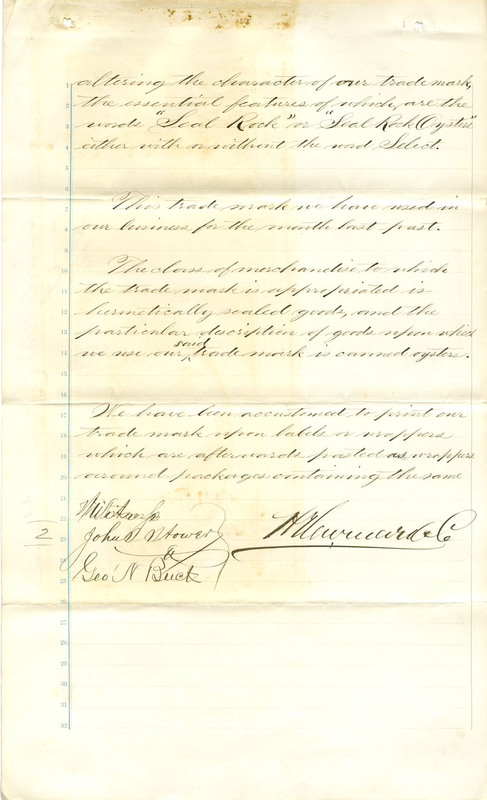 altering the character of our trade mark,
the essential features of which, are the
words "Seal Rock" or "Seal Rock Oysters"
either with or without the word Select.
This trade mark we have used in
our business for the month last past.
The class of merchandise to which
the trade mark is appropriated is
hermetically sealed goods, and the
particular description of goods upon which
said
we use our trade mark is canned oysters.
We have been accustomed to print our
trade mark upon labels or wrappers
which are afterwards pasted as wrappers
around packages containing the same
John
2
Geo N Buck
1
2
3
4
5
6
7
8
9
10
11
12
13
14
15
16
17
18
19
20
21
22
23
24
25
26
27
28
29
30
31
32